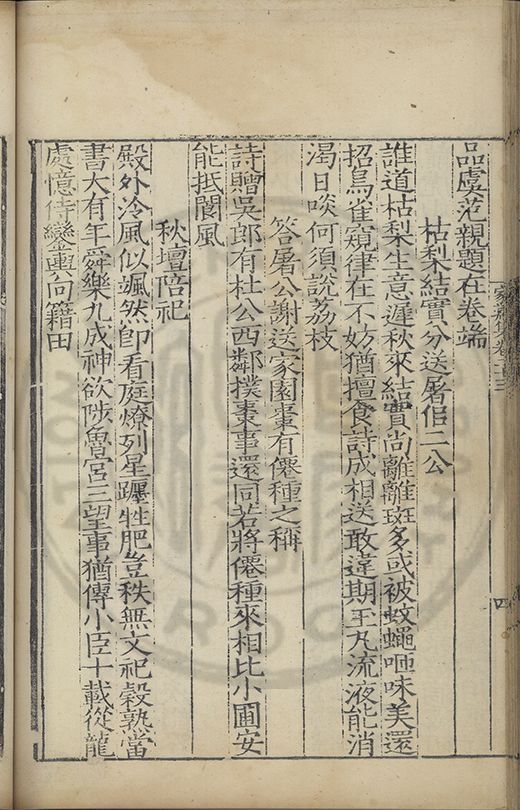 品虞范親題在卷端
枯梨結實分送屠侶二公
誰道枯梨生意遲秋來結實尚離離斑多或被蚊蠅咂味美還
招鳥雀窺律在不妨猶擅食詩成相送敢違期玉丸流液能消
渴日啖何須說荔枝
答屠公謝送家園棗有僊種之稱
詩贈吳郎有杜公西鄰撲棗事還同若將僊種來相比小圃安
能抵閬風
秋壇陪祀
殿外冷風似颯然卽看庭燎列星躔牲肥豈秩無文祀穀熟當
書大有年舜樂九成神欲陟魯宮三望事猶傳小臣十載從龍
處憶侍鑾輿向籍田
四